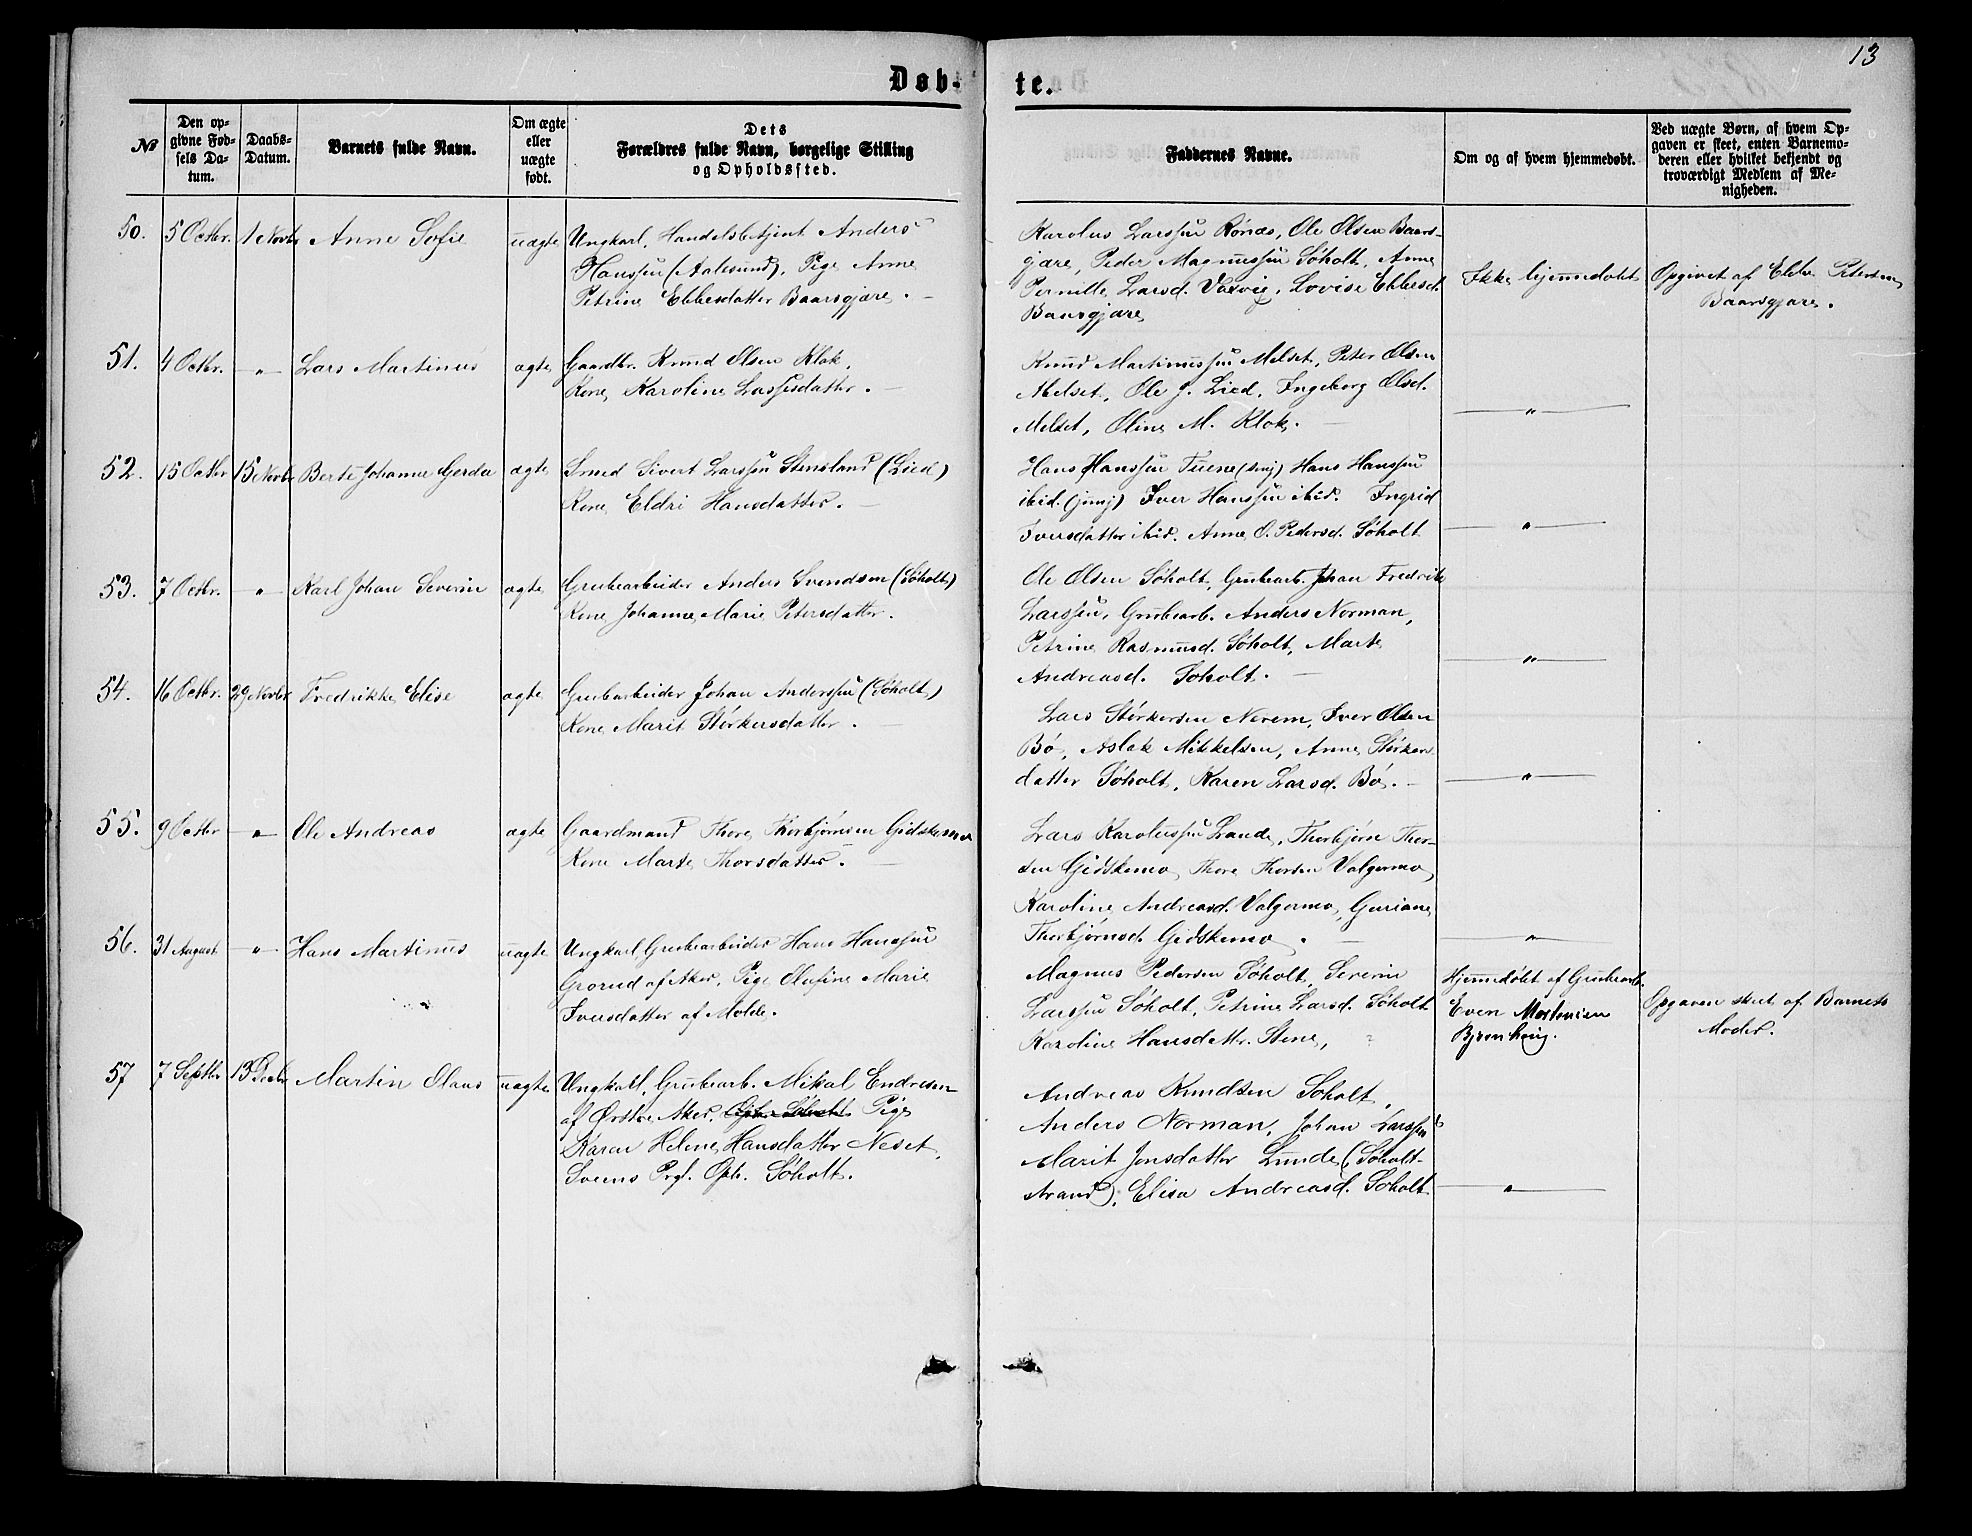 13
Døb-
te.
№
Den op-
givne Fød-
sels Da-
tum.
Daabs-
Datum.
Barnets fulde Navn.
Om ægte
eller
uægte
født.
Dets
Forældres fulde Navn, borgelige Stilling
og Opholdsfted.
Faddernes Navne.
Om og af hvem hjemmedøbt.
Ved uægte Børn, af hvem Op-
gaven er skeet, enten Barnemo-
deren eller hvilket bekjendt og
troværdigt Medlem af Me-
nigheden.
50. 5 Octbr. 1 Novbr Anne Sofie uægte Ungkarl, Handelsbetjent Anders
Hanssen (Aalesund), Pige Anne
Petrine Ebbesdatter Baarsgjære. -
Karolus Larssen Rønæs, Ole Olsen Baars-
gjære, Peder Magnussen Søholt, Anne
Pernille Larsd. Lovise Ebbesd.
Baarsgjære
Ikke hjemmedøbt
Opgivet af Ebbe Petersen
Baarsgjære.
51. 4 Octbr. " Lars Martinus ægte Gaardbr. Knud Olsen Klok.
Kone Karoline Lassesdatter. -
Knud Martinussen Melset, Peter Olsen
Melset, Ole J. Lied, Ingeborg Olsd.
Melset, Oline M. Klok. -
"
52. 15 Octbr 15 Novbr Berte Johanne Gerda ægte Smed Sivert Larssen Stensland (Lied)
Kone Eldri Hansdatter. -
Hans Hanssen Tuene (senj) Hans Hanssen
ibid. (junj) Iver Hanssen ibid. Ingrid
Iversdatter ibid. Anne O. Pedersd. Søholt
"
53. 7 Octbr. " Karl Johan Severin ægte Grubearbeider Anders Svendsen (Søholt)
Kone Johanne Marie Petersdatter.
Ole Olsen Søholt, Grubearb. Johan Fredrik
Larssen, Grubearb. Anders Norman,
Petrine Rasmusd. Søholt, Marte
Andreasd. Søholt. -
"
54. 16 Octbr. 29 Novbr Fredrikke Elise ægte Grubearbeider Johan Anderssen (Søholt)
Kone Marit Størkersdatter. -
Lars Størkersen Nerem, Iver Olsen
Bø, Aslak Mikkelsen, Anne Størkers
datter Søholt, Karen Larsd. Bø. -
"
55. 9 Octbr " Ole Andreas ægte Gaardmand Thore Thorbjørnsen Gidskemo
Kone Marte Thorsdatter. -
Lars Karolussen Lande, Thorbjørn Thor-
sen Gidskemo, Thore Thorsen Valgermo,
Karoline Andreasd. Valgermo, Guriane
Thorbjørnsd. Gidskemo. -
"
56. 31 August " Hans Martinus uægte Ungkarl, Grubearbeider Hans Hanssen
Grorud af Aker, Pige Olafine Marie
Iversdatter af Molde.
Magnus Pedersen Søholt, Severin
Larssen Søholt, Petrine Larsd. Søholt
Karoline Hansdattr. Stene,
Hjemmedøbt af Grubearb.
Even Mortensen
Opgaven skeet af Barnets
Moder.
57 7 Septbr 13 Decbr Martin Olaus uægte Ungkall, Grubearb. Mikal Endresen
af Østre Aker, Pige
Karen Helene Hansdatter Neset,
Svems Prgl. Oph. Søholt.
Andreas Knudsen Søholt,
Anders Norman, Johan Larssen
Marit Jonsdatter Lunde (Søholt-
strand), Elisa Andreasd. Søholt
"